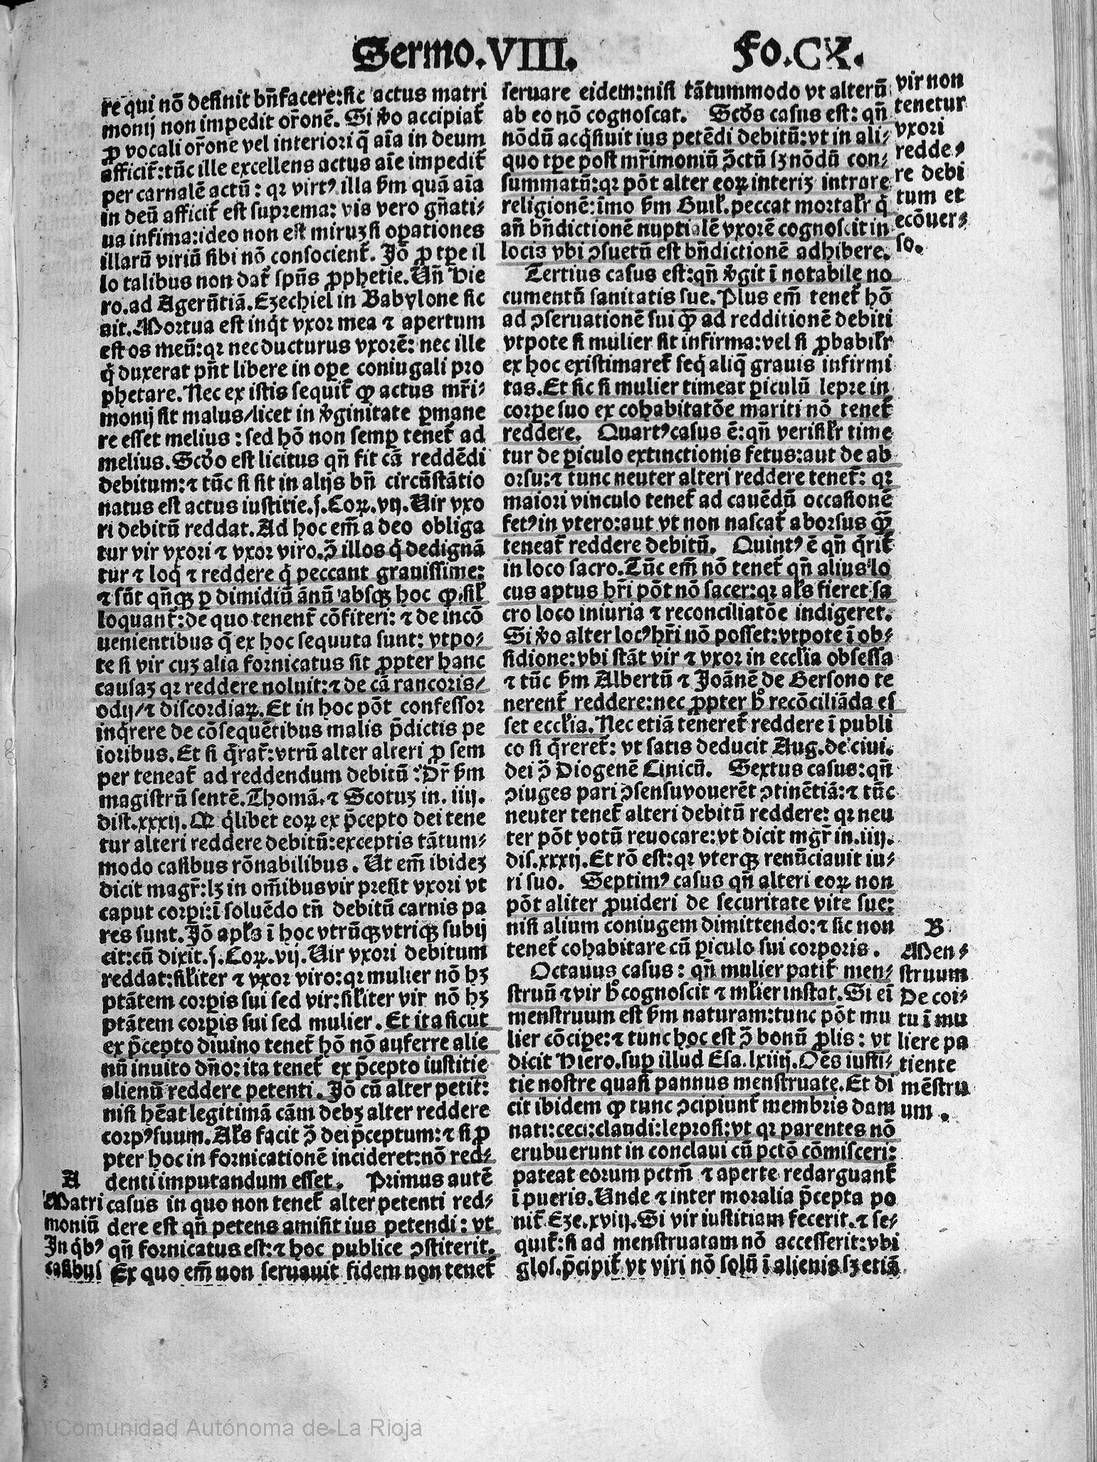 Sermo.VIII. Fo.CX.
re qui nō desinit bñfacere:sic actus matri
monij non impedit orōnē. Si ꝟo accipiat᷑
ꝓ vocali orōne vel interiori q̄ aīa in deum
afficit᷑:tūc ille excellens actus aīe impedit᷑
per carnalē actū: qꝛ virtꝰ illa ẜm quā aīa
in deū afficit᷑ est suprema: vis vero gñati⸗
ua infima:ideo non est miruꝫ si oꝑationes
illarū viriū sibi nō consocient᷑. Jō ꝓ tꝑe il
lo talibus non dat᷑ spūs ꝓphetie. Uñ Hie
ro.ad Agerūtiā. Eꝫechiel in Babylone sic
ait. Mortua est inq̇t vxor mea ⁊ apertum
est os meū:qꝛ nec ducturus vxorē: nec ille
q̇ duxerat pñt libere in oꝑe coniugali pro
phetare. Nec ex istis sequit᷑ ꝙ actus mr̄i⸗
monij sit malus/licet in ꝟginitate ꝑmane
re esset melius: sed hō non semꝑ tenet᷑ ad
melius. Scḋo est licitus qñ fit cā reddēdi
debitum:⁊ tūc si sit in alijs bñ circūstātio
natus est actus iustitie.j.Coꝝ.vij. Uir vxo
ri debitū reddat. Ad hoc em̄ a deo obliga
tur vir vxori ⁊ vxor viro. ↄ̄ illos q̇ dedignā
tur ⁊ loq̇ ⁊ reddere q̇ peccant grauissime:
⁊ sūt qñqꝫ ꝑ dimidiū ānū absqꝫ hoc ꝙ sil̓
loquant᷑:de quo tenent᷑ cōfiteri: ⁊ de incō
uenientibus q̄ ex hoc sequuta sunt: vtpo⸗
te si vir cuꝫ alia fornicatus sit ꝓpter hanc
causaꝫ qꝛ reddere noluit:⁊ de cā rancoris/
odij/⁊ discordiaꝝ. Et in hoc pōt confessor
inq̇rere de cōsequētibus malis p̄dictis pe
ioribus. Et si q̄rat᷑:vtrū alter alteri ꝓ sem
per teneat᷑ ad reddendum debitū: Dr̄ ẜm
magistrū sentē. Thomā.⁊ Scotuꝫ in.iiij.
dist.xxxij. ꝙ q̇libet eoꝝ ex p̄cepto dei tene
tur alteri reddere debitū:exceptis tātum⸗
modo casibus rōnabilibus. Ut em̄ ibideꝫ
dicit magr̄:lꝫ in om̄ibus vir presit vxori vt
caput corpi:ī soluēdo tñ debitū carnis pa
res sunt. Jō apl̓s ī hoc vtrūqꝫ vtriqꝫ subij
cit:cū dixit.j.Coꝝ.vij. Uir vxori debitum
reddat:sil̓iter ⁊ vxor viro:qꝛ mulier nō hꝫ
ptātem corꝑis sui sed vir:sil̓iter vir nō hꝫ
ptātem corꝑis sui sed mulier. Et ita sicut
ex p̄cepto diuino tenet᷑ hō nō auferre alie
nū inuito dño: ita tenet᷑ ex p̄cepto iustitie
alienū reddere petenti. Jō cū alter petit:
nisi hēat legitimā cām debꝫ alter reddere
corpꝰ suum. Al̓s facit ↄ̄ dei p̄ceptum:⁊ si ꝓ
pter hoc in fornicationē incideret:nō red⸗
denti imputandum esset. Primus autē
casus in quo non tenet᷑ alter petenti red⸗
dere est qñ petens amisit ius petendi: vt
qñ fornicatus est:⁊ hoc publice ↄstiterit.
Ex quo em̄ non seruauit fidem non tenet᷑
A
Matri
moniū
In q̇bꝰ
casibus
seruare eidem:nisi tātummodo vt alterū
ab eo nō cognoscat. Scḋs casus est: qñ
nōdū acq̇siuit ius petēdi debitū: vt in ali⸗
quo tꝑe post mr̄imoniū ↄ̄ctū sꝫ nōdū con⸗
summatū:qꝛ pōt alter eoꝝ interiꝫ intrare
religionē:īmo ẜm Guil̓.peccat mortal̓r q̇
añ bñdictionē nuptialē vxorē cognoscit in
locis vbi ↄsuetū est bñdictionē adhibere.
Tertius casus est:qñ ꝟgit ī notabile no
cumentū sanitatis sue. Plus em̄ tenet᷑ hō
ad ↄseruationē sui ꝙ̄ ad redditionē debiti
vtpote si mulier sit infirma:vel si ꝓbabil̓r
ex hoc existimaret᷑ seq̇ aliq̄ grauis infirmi
tas. Et sic si mulier timeat ꝑiculū lepre in
corꝑe suo ex cohabitatōe mariti nō tenet᷑
reddere. Quartꝰ casus ē:qñ verisil̓r time
tur de ꝑiculo extinctionis fetus:aut de ab
orsu:⁊ tunc neuter alteri reddere tenet᷑: qꝛ
maiori vinculo tenet᷑ ad cauēdū occasionē
fetꝰ in vtero:aut vt non nascat᷑ aborsus ꝙ̄
teneat᷑ reddere debitū. Quintꝰ ē qñ q̄rit᷑
in loco sacro. Tūc em̄ nō tenet᷑ qñ alius lo
cus aptus hr̄i pōt nō sacer:qꝛ al̓s fieret sa
cro loco iniuria ⁊ reconciliatōe indigeret.
Si ꝟo alter locꝰ hr̄i nō posset:vtpote ī ob⸗
sidione:vbi stāt vir ⁊ vxor in eccl̓ia obsessa
⁊ tūc ẜm Albertū ⁊ Joānē de Gersono te
nerent᷑ reddere:nec ꝓpter h̓ recōciliāda es
set eccl̓ia. Nec etiā teneret᷑ reddere ī publi
co si q̄reret᷑: vt satis deducit Aug.de ciui.
dei ↄ̄ Diogenē Cinicū. Sextus casus:qñ
ↄiuges pari ↄsensu vouerēt ↄtinētiā:⁊ tūc
neuter tenet᷑ alteri debitū reddere: qꝛ neu
ter pōt votū reuocare:vt dicit mgr̄ in.iiij.
dis.xxxij. Et rō est:qꝛ vterqꝫ renūciauit iu⸗
ri suo. Septimꝰ casus qñ alteri eoꝝ non
pōt aliter ꝓuideri de securitate vite sue:
nisi alium coniugem dimittendo:⁊ sic non
tenet᷑ cohabitare cū ꝑiculo sui corporis.
Octauus casus: qñ mulier patit᷑ men⸗
struū ⁊ vir h̓ cognoscit ⁊ ml̓ier instat. Si ei
menstruum est ẜm naturam:tunc pōt mu
lier cōcipe:⁊ tunc hoc est ↄ̄ bonū ꝓlis: vt
dicit Hiero.suꝑ illud Esa.lxiiij. Oēs iusti⸗
tie nostre quasi pannus menstruate. Et di
cit ibidem ꝙ tunc ↄcipiunt᷑ membris dam
nati:ceci:claudi:leprosi:vt qꝛ parentes nō
erubuerunt in conclaui cū pctō cōmisceri:
pateat eorum pctm̄ ⁊ aperte redarguant᷑
ī pueris. Unde ⁊ inter moralia p̄cepta po
nit᷑ Eze.xviij. Si vir iustitiam fecerit.⁊ se⸗
quit᷑:si ad menstruatam nō accesserit:vbi
glos.p̄cipit᷑ vt viri nō solū ī alienis sꝫ etiā
vir non
tenetur
vxori
redde⸗
re debi
tum et
ecōuer⸗
so.
B
Men⸗
struum
De coi⸗
tu ī mu
liere pa
tiente
mēstru
um.
Comunidad Autónoma de La Rioja